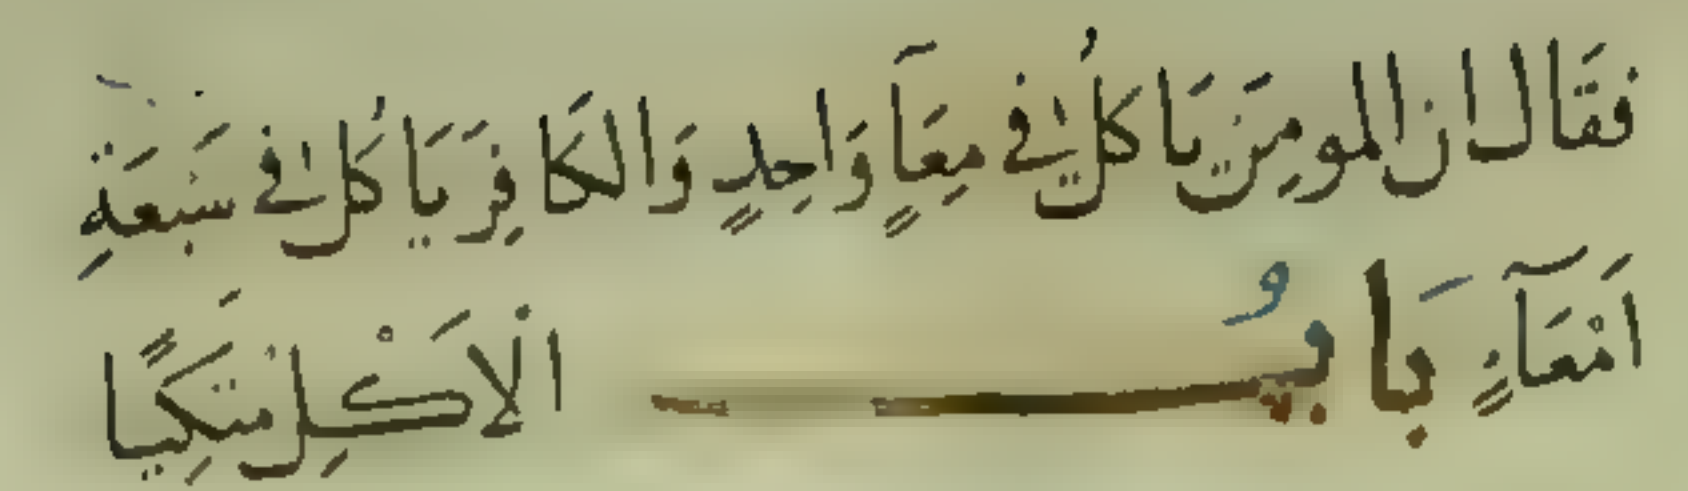 فَقَالَ ان المومِنَ يَاكُلُ فِي مِعَآٍ وَاحِدٍ وَالكَافِرَ يَاكُلُ فِي سَبْعَةِ
اَمْعَآءٍ بَابُ الْاَكْلِ مُتَّكِيًا